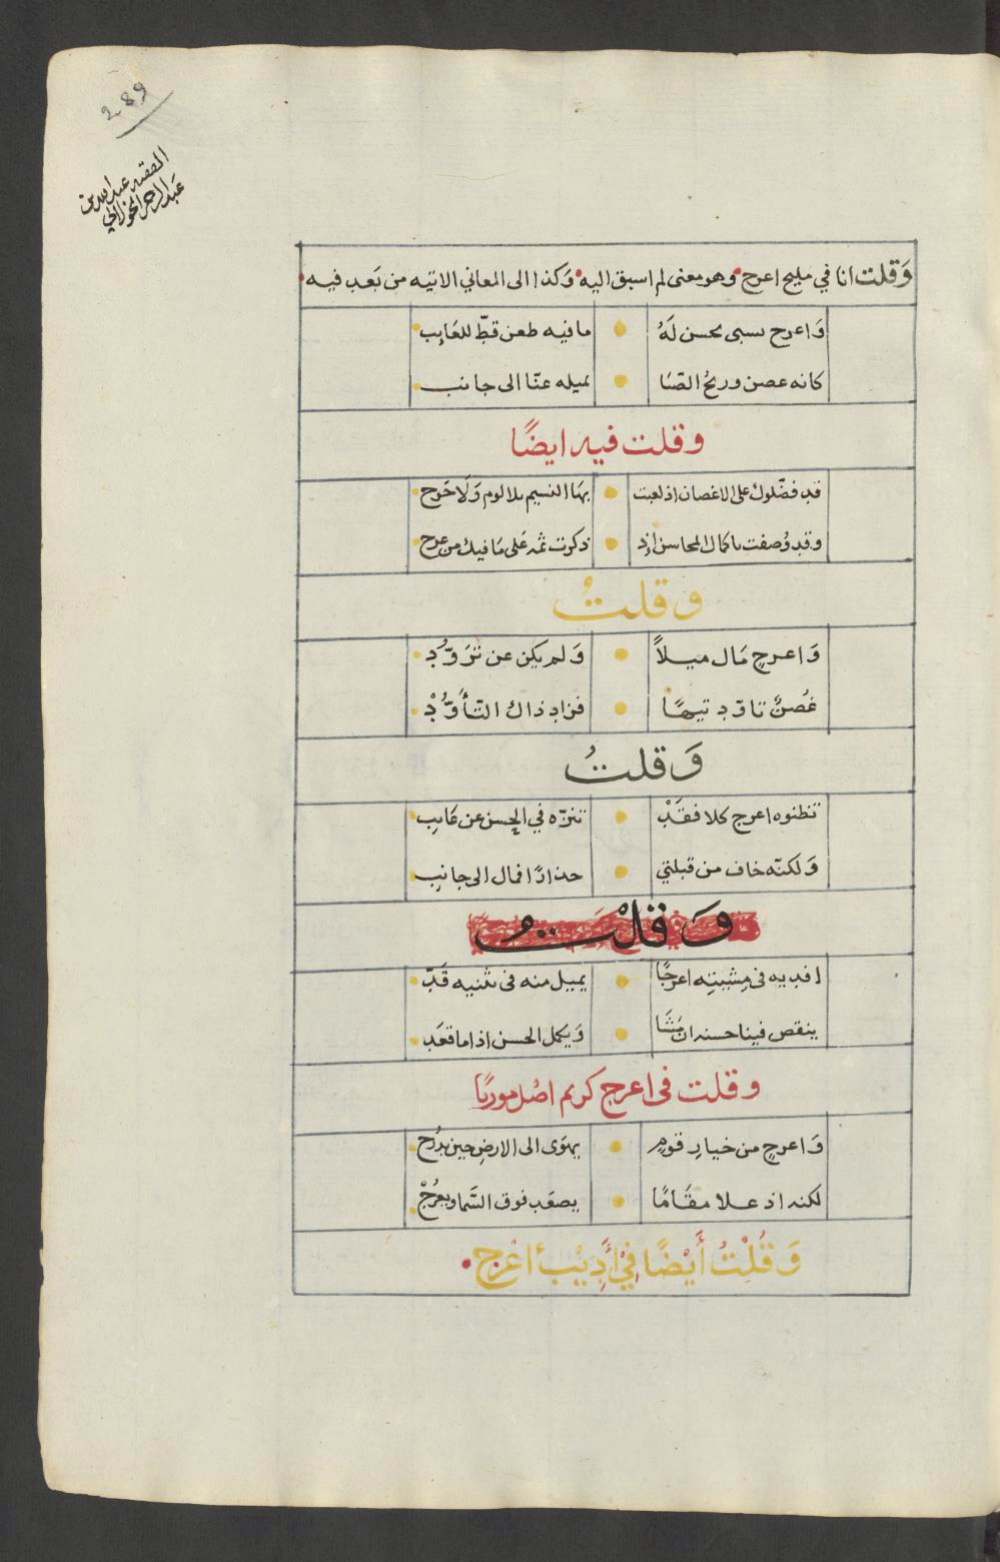 289
الفقيه عبد الله بن
عبد الرحمن الخولاني
وَقلت انا في مليح اعرج وهو معنى لم اسبق اليه وَكذا الى المعاني الاتيه من بَعد فيه
وَاعرج سبى بحسن لَهُ مافيه طعن قطّ للعَايب
كانه عصن وريحُ الصّبا تميله عنّا الى جانب
وقلت فيه ايضًا
قد فضّلوك على الاغصان اذ لعبت بهَا النسيم بلا لوم وَلَا حَرج
وقد وُصفت باكمال المحاسن اِذ ذكرت ثمه عَلى مَا فيك من عرج
وقلتُ
وَاعرجٍ مَال ميلاً وَلم يكن عن تزَوّدِ
غُصنٌ تاوّد تيهًا فزاد ذاك التّأوُّدْ
وَقلتُ
تظنوه اعرج كلا فقَدْ تنزّه في الحسن عن عَايب
وَلكنّه خاف من قبلتي حذارًا فمال الى جانبِ
وَقلْتُ
افديه في مِشيتِه اعرجًا يميل منه في تثنيه قَدّ
ينقص فينا حسنه ان مَشَا وَيكمل الحسن اذا ما قعَد
وقلت في اعرج كريم اصُل موريًا
وَاعرجٍ من خيارِ قومٍ يهوَى الى الارضِ حين يدرُج
لكنه اذ علا مقَامًا يصعَد فوق السَّما ويعرُجْ
وَقُلْتُ أَيْضًا فِيْ أَدِيْبٍ أعْرج